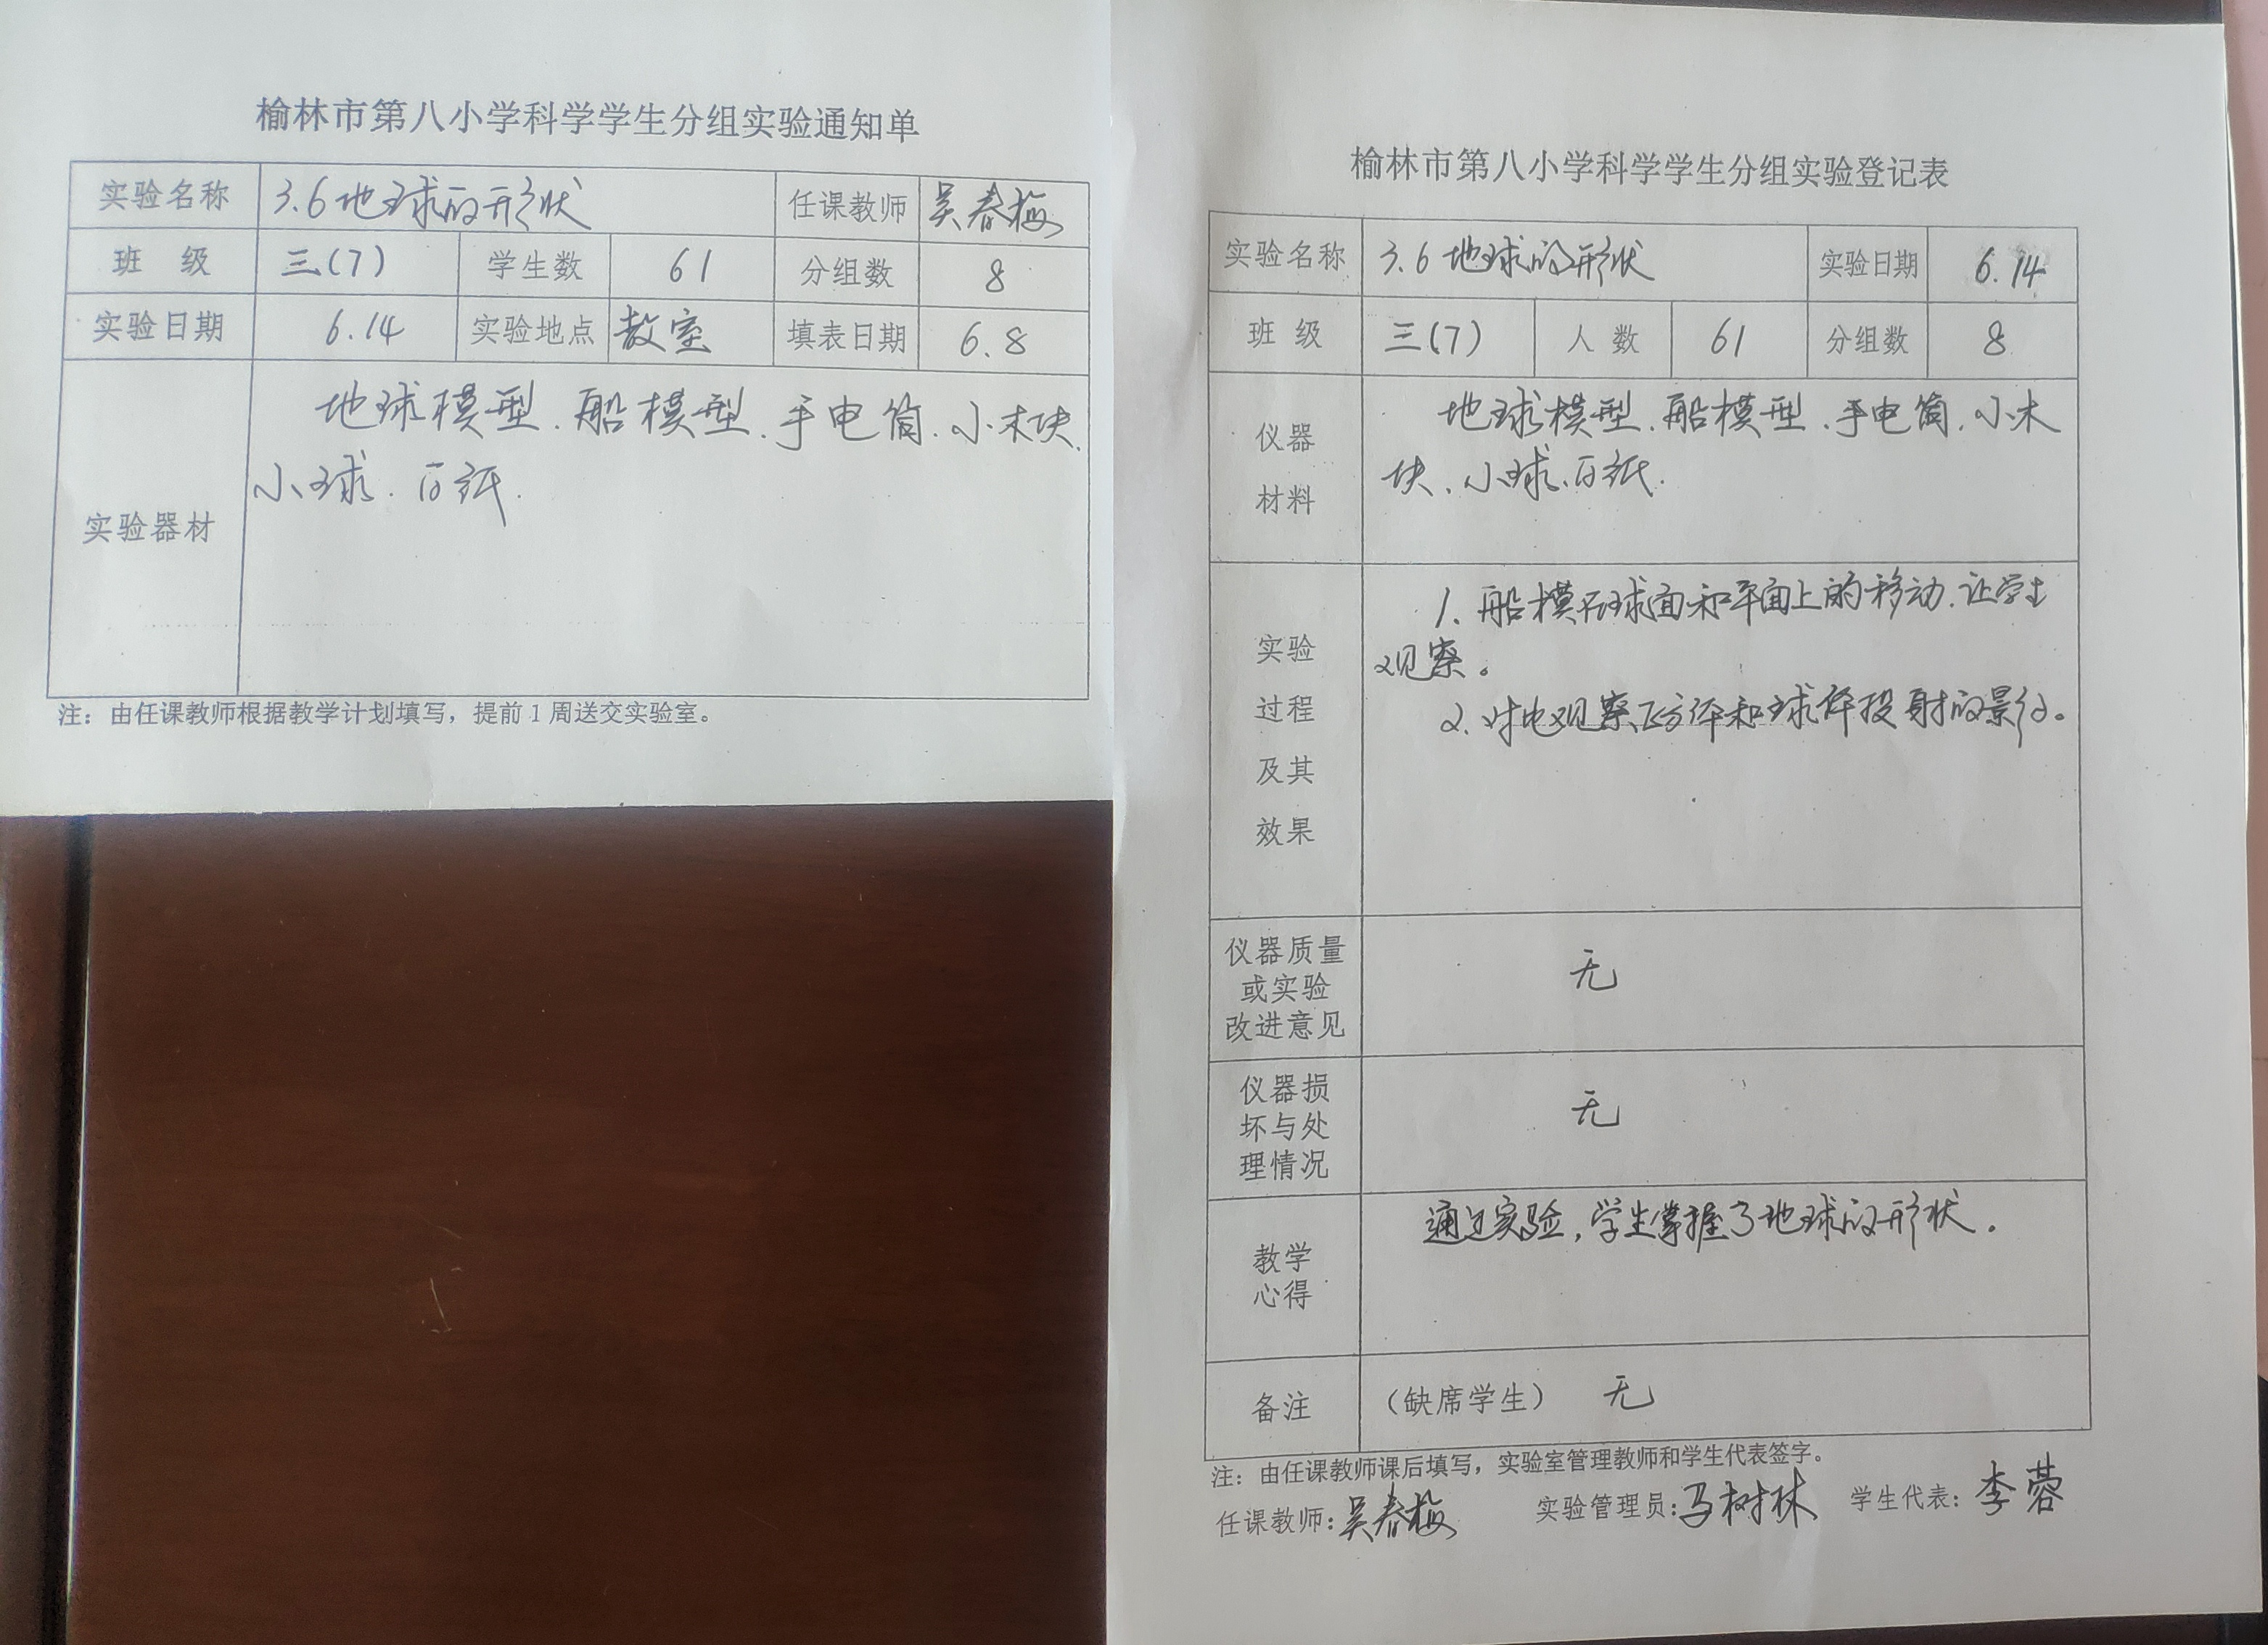 榆林市第八小学科学学生分组实验通知单
实验名称 3.6地球的形状 任课教师 吴春梅
班 级 三(7) 学生数 61 分组数 8
实验日期 6.14 实验地点 教室 填表日期 6.8
实验器材 地球模型、船模型、手电筒、小木块、
小球、白纸.
注：由任课教师根据教学计划填写，提前1周送交实验室。
榆林市第八小学科学学生分组实验登记表
实验名称 3.6地球的形状 实验日期 6.14
班 级 三(7) 人 数 61 分组数 8
仪器 地球模型、船模型、手电筒、小木
材料 块、小球、白纸.
实验 1. 船模在球面和平面上的移动.让学生
过程 观察。
及其 2. 对比观察正方体和球体投射的影子。
效果
仪器质量
或实验 无
改进意见
仪器损
坏与处 无
理情况
教学 通过实验，学生掌握了地球的形状.
心得
备注 （缺席学生） 无
注：由任课教师课后填写，实验室管理教师和学生代表签字。
任课教师：吴春梅 实验管理员：马树林 学生代表：李蓉